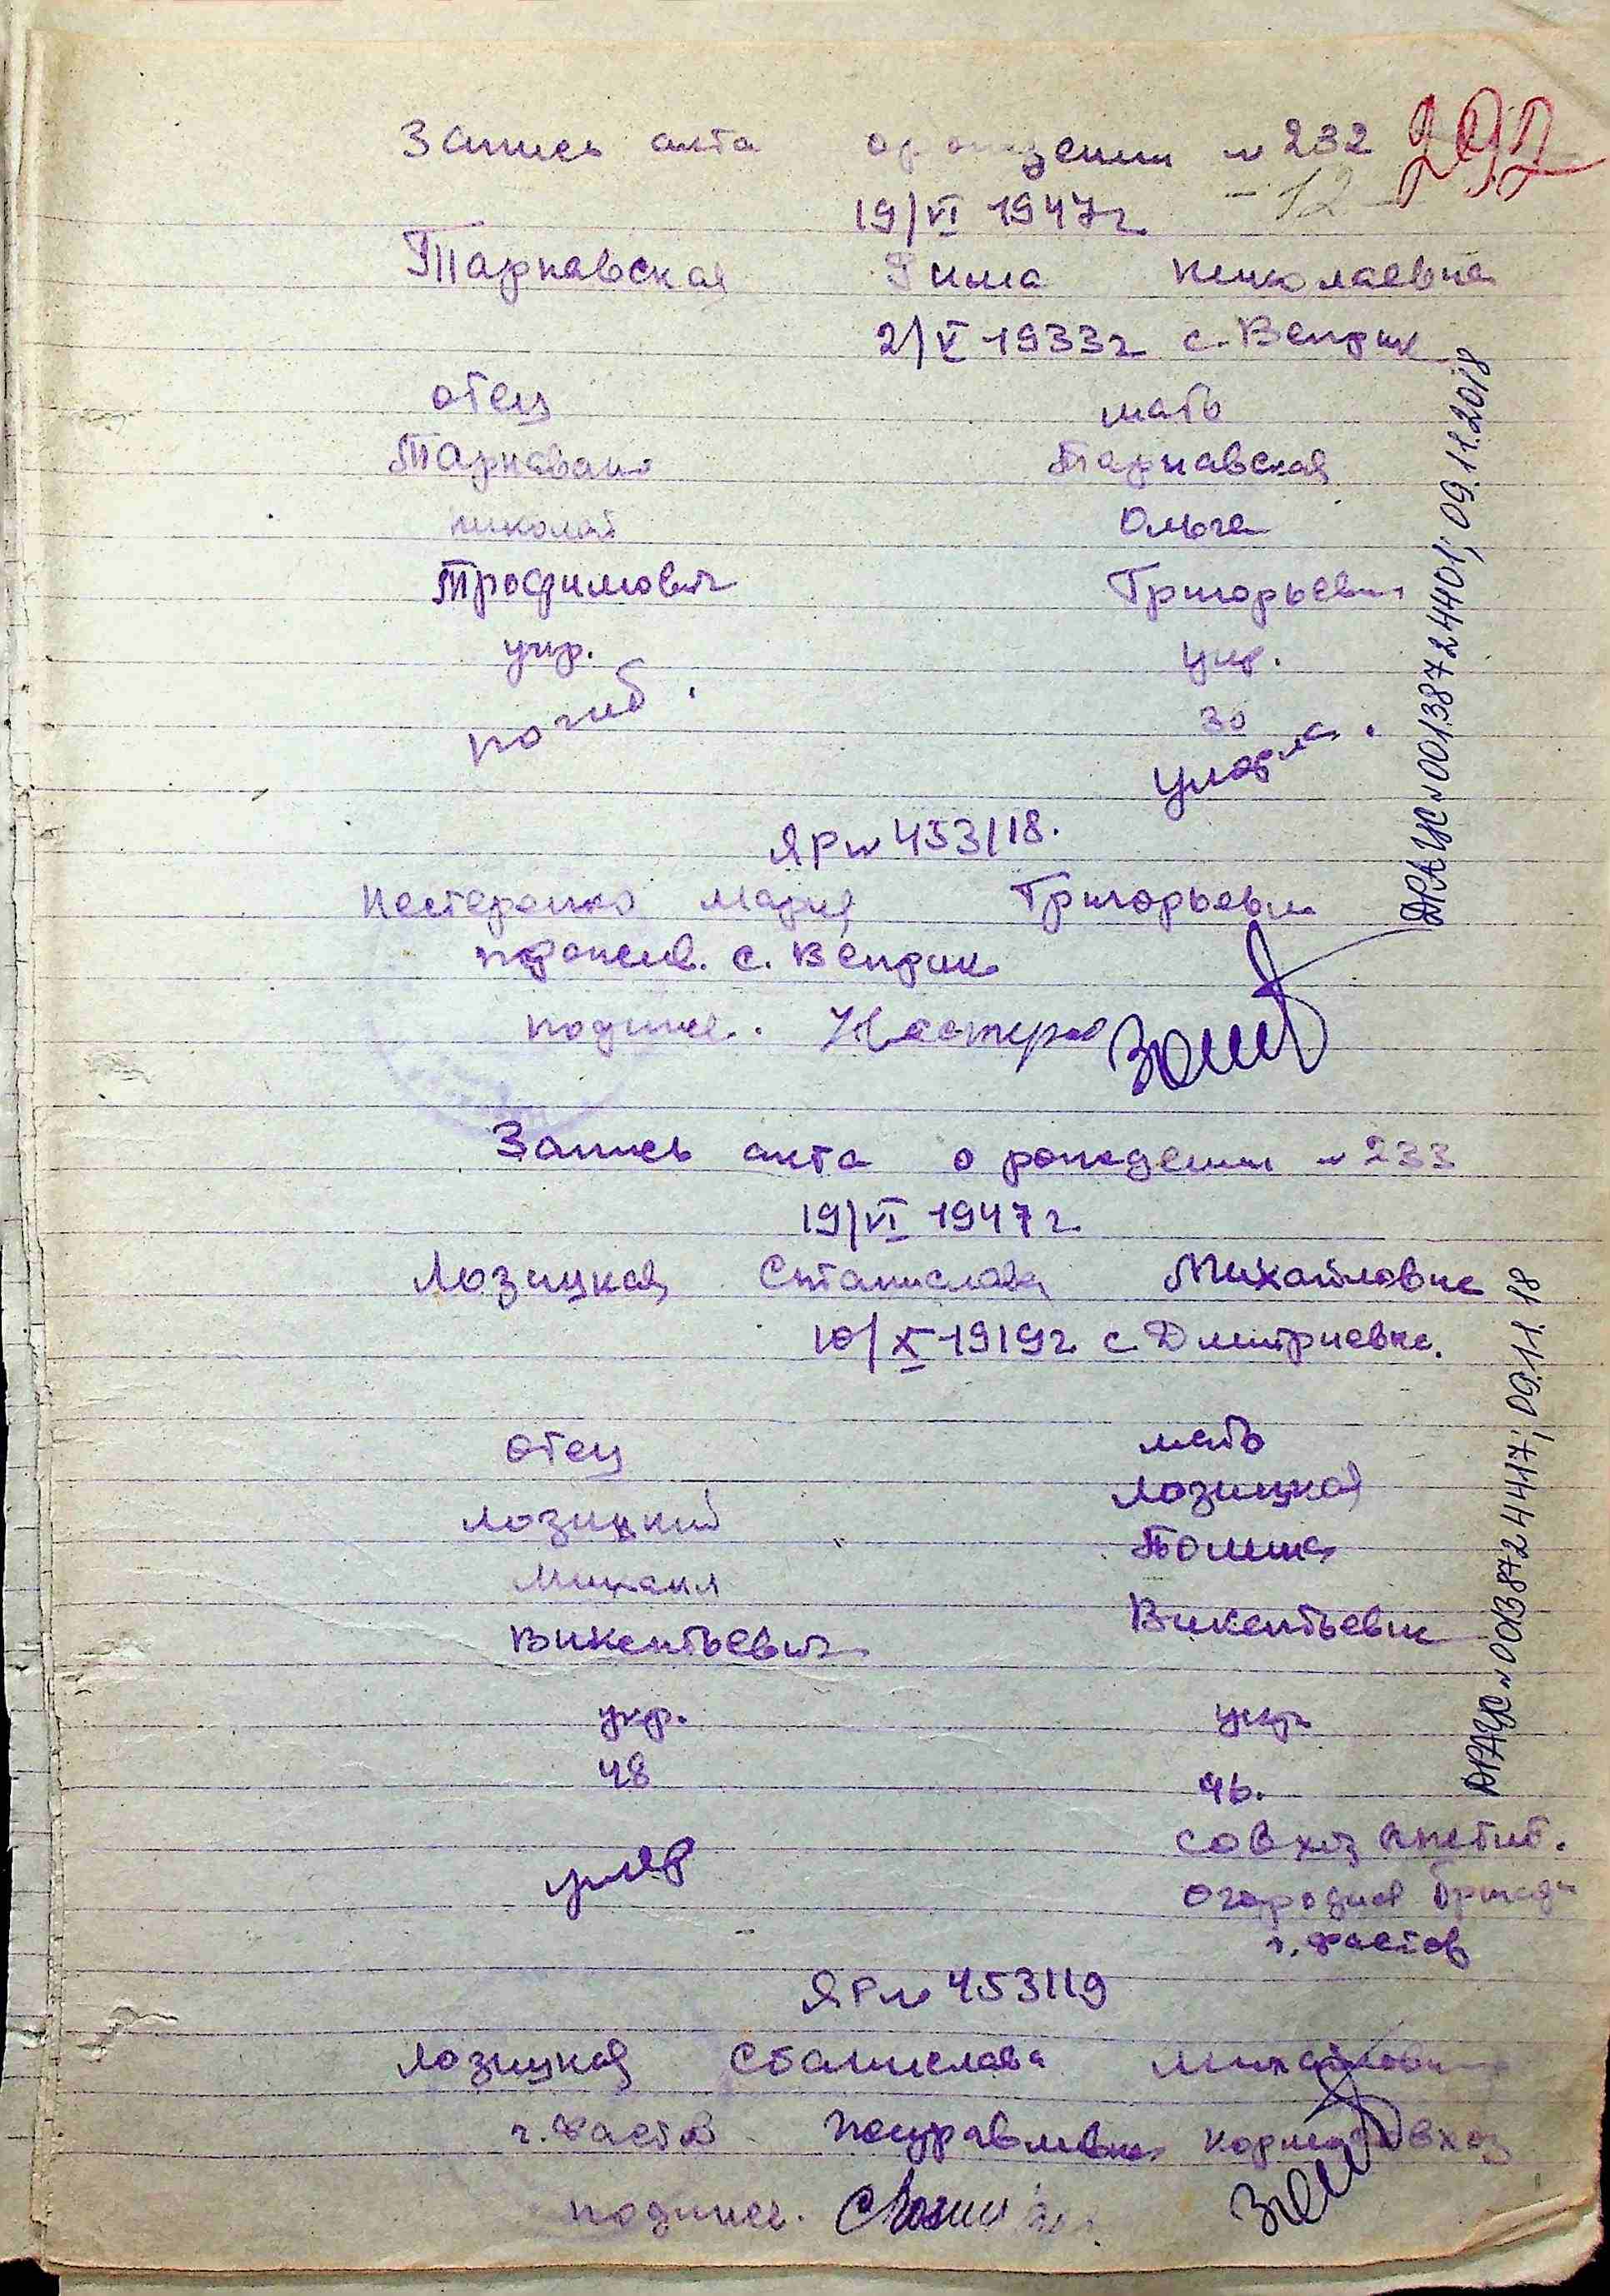 Запись акта о рождении № 232
292
19/VI 1947г
- 12 -
Тарнавская Нина Николаевна
2/V 1933г с. Веприк
отец мать
Тарнавский Тарнавская
Николай Ольга
Трофимович Григорьевна
укр. укр.
погиб. 30
умерла.
ЯР № 453118.
Нестеренко Мария Григорьевна
прожив. с. Веприк
подпись. Нестерен
ДРАЦС № 00138724401; 09.11.2018
Запись акта о рождении № 233
19/VI 1947г.
Лозицкая Станислава Михайловна
10/X 1919г. с. Дмитриевка.
отец мать
Лозицкий Лозицкая
Михаил Полина
Викентьевич Викентьевна
укр. укр.
48 46.
умер совхоз
Огородная бригад
г. Фастов
ЯР № 453119
Лозицкая Станислава Михайловна
г. Фастов кормосовхоз
подпись. СЛози
ДРАЦС № 00138724417; 09.11.18